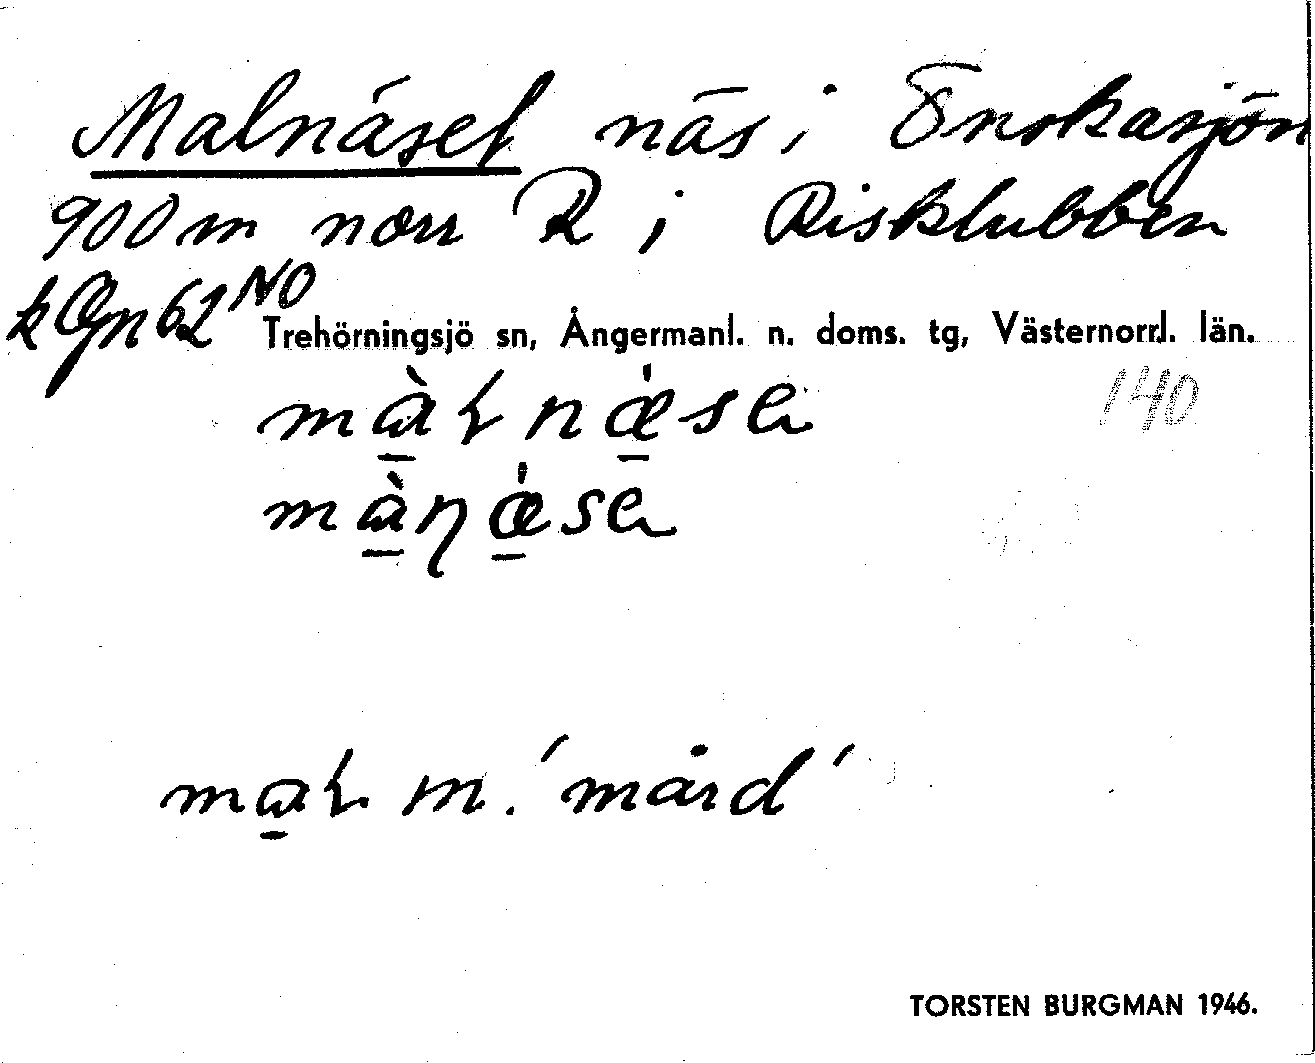 Malnäset näs i Önskasjön
900 m norr R i Risklubben
k Ggn 62 NO
Trehörningsjö sn, Ångermanl. n. doms. tg, Västernorrl. län.
140
m. 'mård'
TORSTEN BURGMAN 1946.